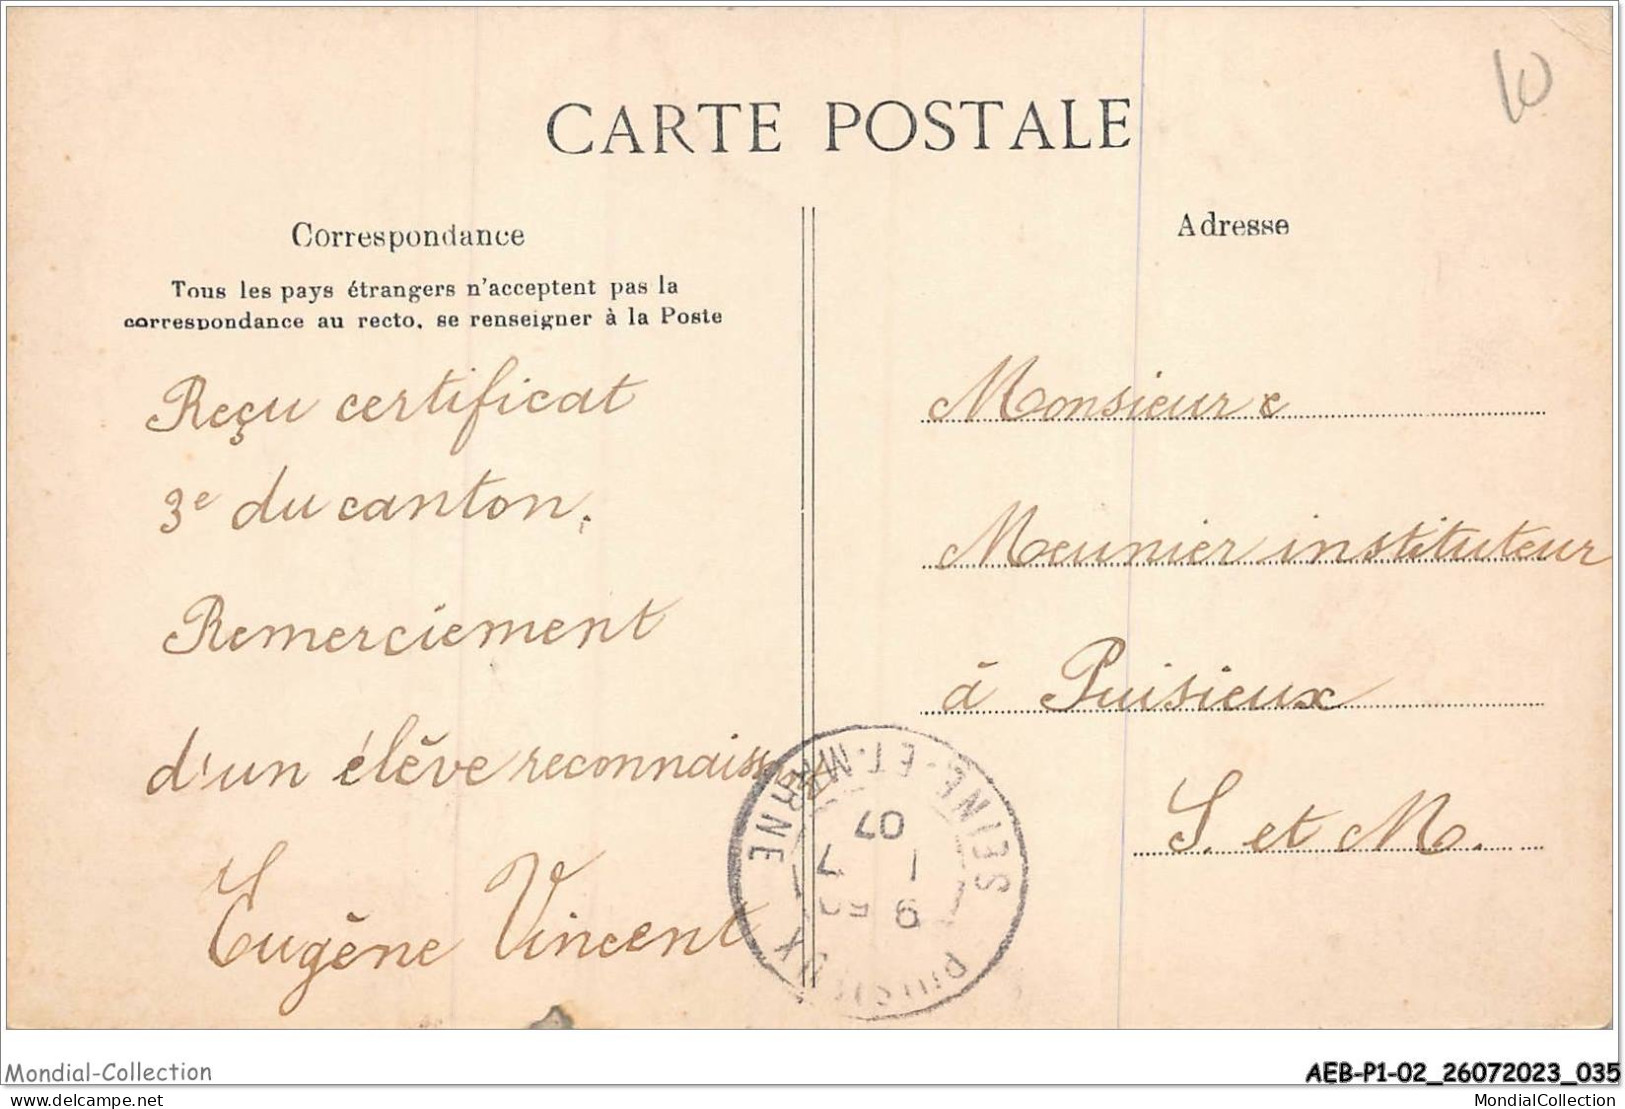 10
CARTE POSTALE
Correspondance
Tous les pays étrangers n'acceptent pas la
correspondance au recto, se renseigner à la Poste
Reçu certificat
3e du canton.
Remerciement
d'un élève reconnaissant
Eugène Vincent
Adresse
Monsieur
Meunier instituteur
à Puisieux
S. et M.
PUISIEUX
SEINE-ET-MARNE
9 50
1 7
07
Mondial-Collection
AEB-P1-02_26072023_035
delcampe.net
MondialCollection